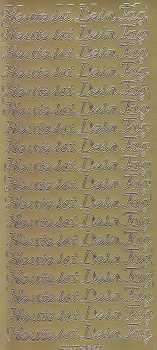 Heute ist Dein Tag
Heute ist Dein Tag
Heute ist Dein Tag
Heute ist Dein Tag
Heute ist Dein Tag
Heute ist Dein Tag
Heute ist Dein Tag
Heute ist Dein Tag
Heute ist Dein Tag
Heute ist Dein Tag
Heute ist Dein Tag
Heute ist Dein Tag
Heute ist Dein Tag
Heute ist Dein Tag
Heute ist Dein Tag
Heute ist Dein Tag
Heute ist Dein Tag
Heute ist Dein Tag
Heute ist Dein Tag